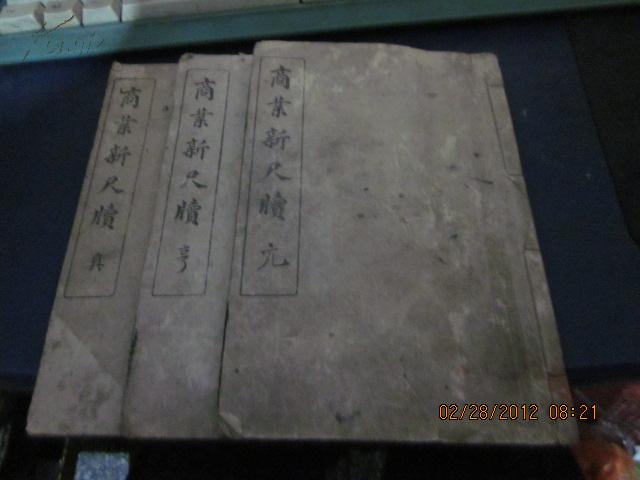 商業新尺牘 元
商業新尺牘 亨
商業新尺牘 貞
02/28/2012 08:21